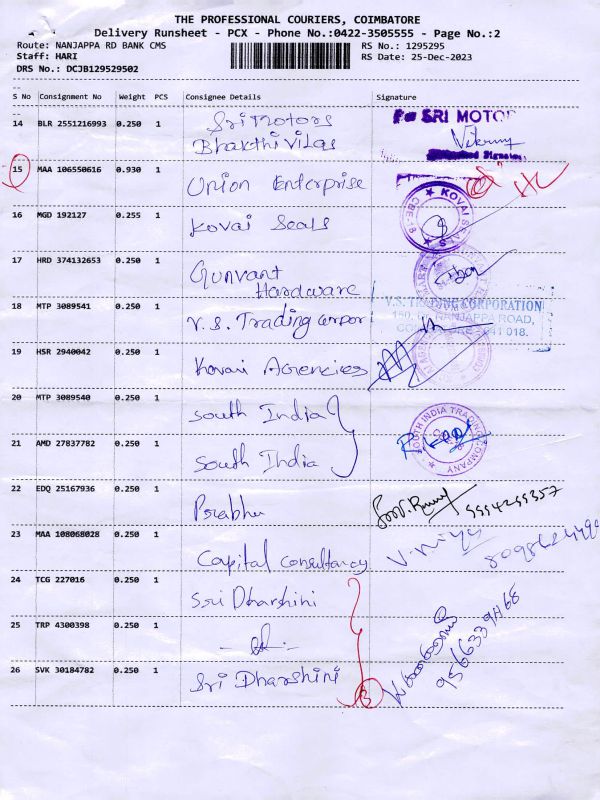 THE PROFESSIONAL COURIERS, COIMBATORE
Delivery Runsheet - PCX - Phone No.:0422-3505555 - Page No.:2
Route: NANJAPPA RD BANK CMS RS No.: 1295295
Staff: HARI RS Date: 25-Dec-2023
DRS No.: DCJB129529502
S No Consignment No Weight PCS Consignee Details Signature
14 BLR 2551216993 0.250 1 Sri Motors SRI MOTOR
Bhakthi Vilas
15 MAA 106550616 0.930 1 Union Enterprise
16 MGD 192127 0.255 1 Kovai Seals KOVAI SEALS CBE-18
17 HRD 374132653 0.250 1 Gunvant
Hardware
18 MTP 3089541 0.250 1 V.S. Trading corpor V.S. TRADING CORPORATION
NANJAPPA ROAD,
19 HSR 2940042 0.250 1 Kovai Agencies
20 MTP 3089540 0.250 1 South India SOUTH INDIA TRADING COMPANY
21 AMD 27837782 0.250 1 South India
22 EDQ 25167936 0.250 1 Prabhu
23 MAA 108068028 0.250 1 Capital Consultancy
24 TCG 227016 0.250 1 Sri Dharshini
25 TRP 4300398 0.250 1
26 SVK 30184782 0.250 1 Sri Dharshini 3 9566339468